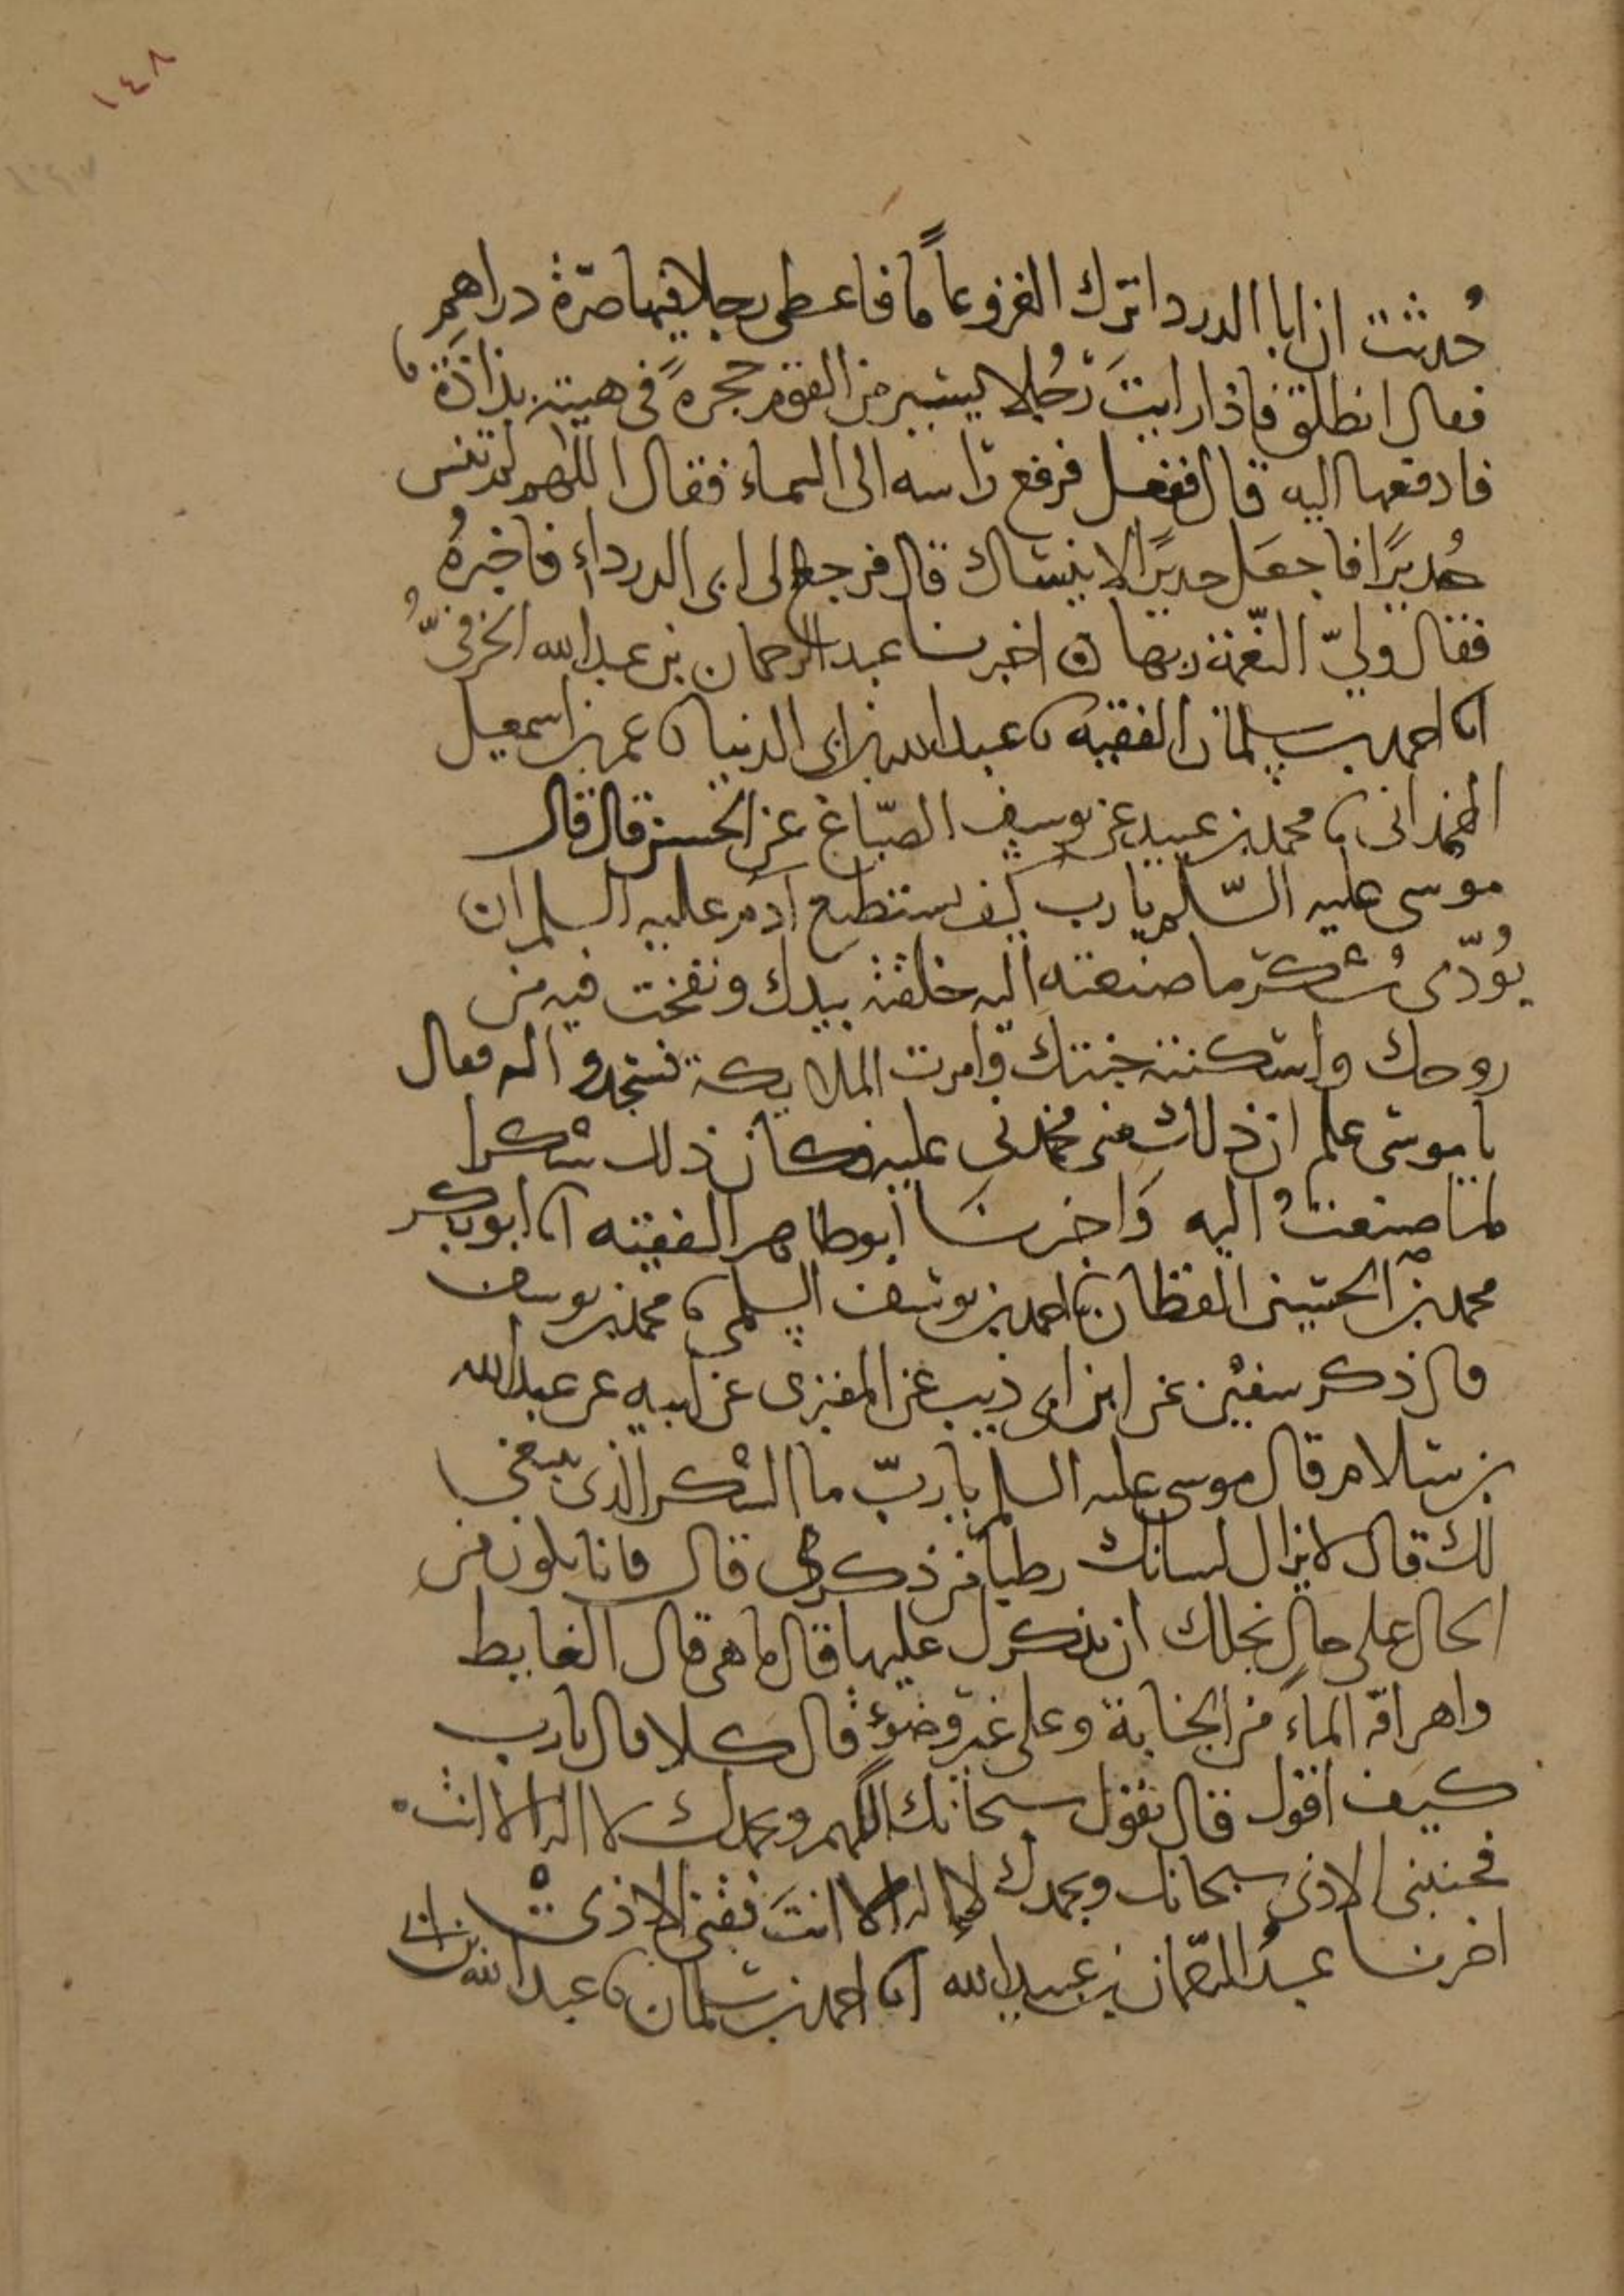 ١٤٨
حدثت ان ابا الدردا ترك الغزو عاما فاعطى رجلا فيها صرة دراهم
فقال انطلق فاذا رايت رجلا يسير من القوم حجرة في هيته بذاذة
فادفعها اليه قال ففعل فرفع راسه الى السماء فقال اللهم لم تنس
حديرا فاجعل حديرا لا ينساك قال فرجع الى ابى الدرداء فاخبره
فقال ولي النعمة ربها ن اخبرنا عبد الرحمان بن عبد الله الخرفي
انا احمد بن سلمان الفقيه نا عبد الله بن ابى الدنيا نا عمر بن اسمعيل
الهمدانى نا محمد بن عبيد عن يوسف الصباغ عن الحسن قال قال
موسى عليه السلم يا رب كيف يستطيع آدم عليه السلم ان
يؤدى شكر ما صنعته اليه خلقته بيدك ونفخت فيه من
روحك واسكنته جنتك وامرت الملايكة فسجدوا له فقال
يا موسى علم ان ذلك منى فحمدنى عليه فكان ذلك شكرا
لما صنعت اليه واخبرنا ابو طاهر الفقيه انا ابو بكر
محمد بن الحسين القطان نا احمد بن يوسف السلمى نا محمد بن يوسف
قال ذكر سفين عن ابن ابى ذيب عن المقبرى عن ابيه عن عبد الله
بن سلام قال موسى عليه السلم يا رب ما الشكر الذى ينبغى
لك قال لا يزال لسانك رطبا من ذكرى قال فانا نكون من
الحال على حال نجلك ان نذكرك عليها قال ما هى قال الغايط
واهراقه الماء من الجنابة وعلى غير وضوء قال كلا قال يا رب
كيف اقول قال تقول سبحانك اللهم وبحمدك لا اله الا انت
فجنبنى الاذى سبحانك وبحمدك لا اله الا انت فقنى الاذى
اخبرنا عبد الرحمان بن عبيد الله انا احمد بن سلمان نا عبد الله بن